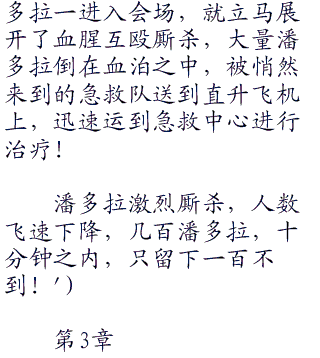 多拉一进入会场，就立马展
开了血腥互殴厮杀，大量潘
多拉倒在血泊之中，被悄然
来到的急救队送到直升飞机
上，迅速运到急救中心进行
治疗！
潘多拉激烈厮杀，人数
飞速下降，几百潘多拉，十
分钟之内，只留下一百不
到！')
第3章